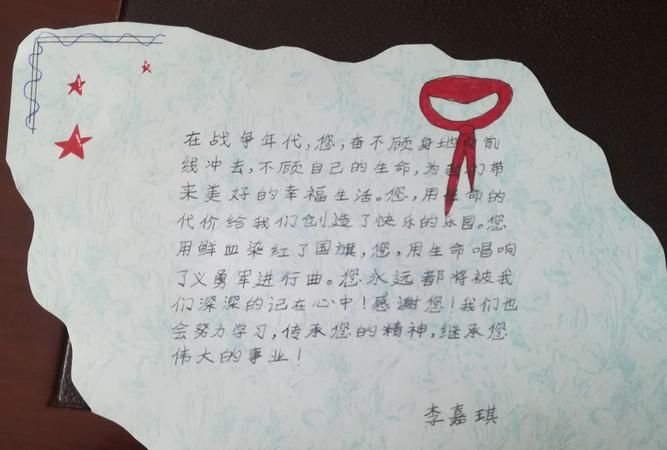 在战争年代,您,奋不顾身地向前
线冲去,不顾自己的生命,为我们带
来美好的幸福生活。您,用生命的
代价给我们创造了快乐的乐园。您
用鲜血染红了国旗,您,用生命唱响
了义勇军进行曲。您永远都将被我
们深深的记在心中!感谢您!我们也
会努力学习,传承您的精神,继承您
伟大的事业!
李嘉琪